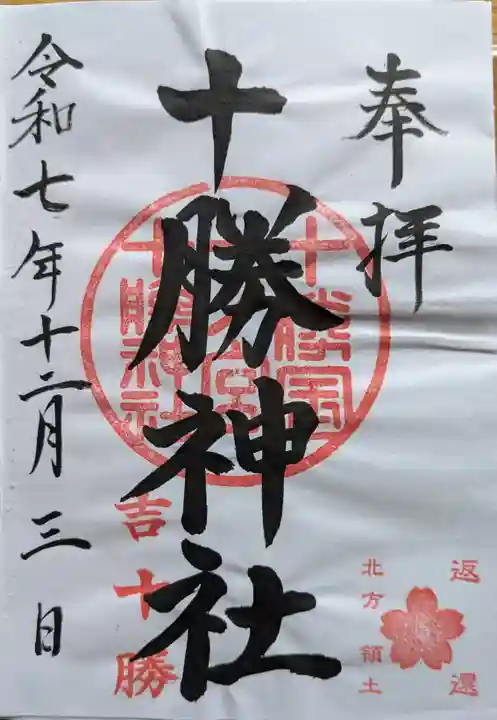 奉拝
十勝神社
令和七年十二月三日
十勝國
一宮
十勝神社
吉十勝
返還
北方領土